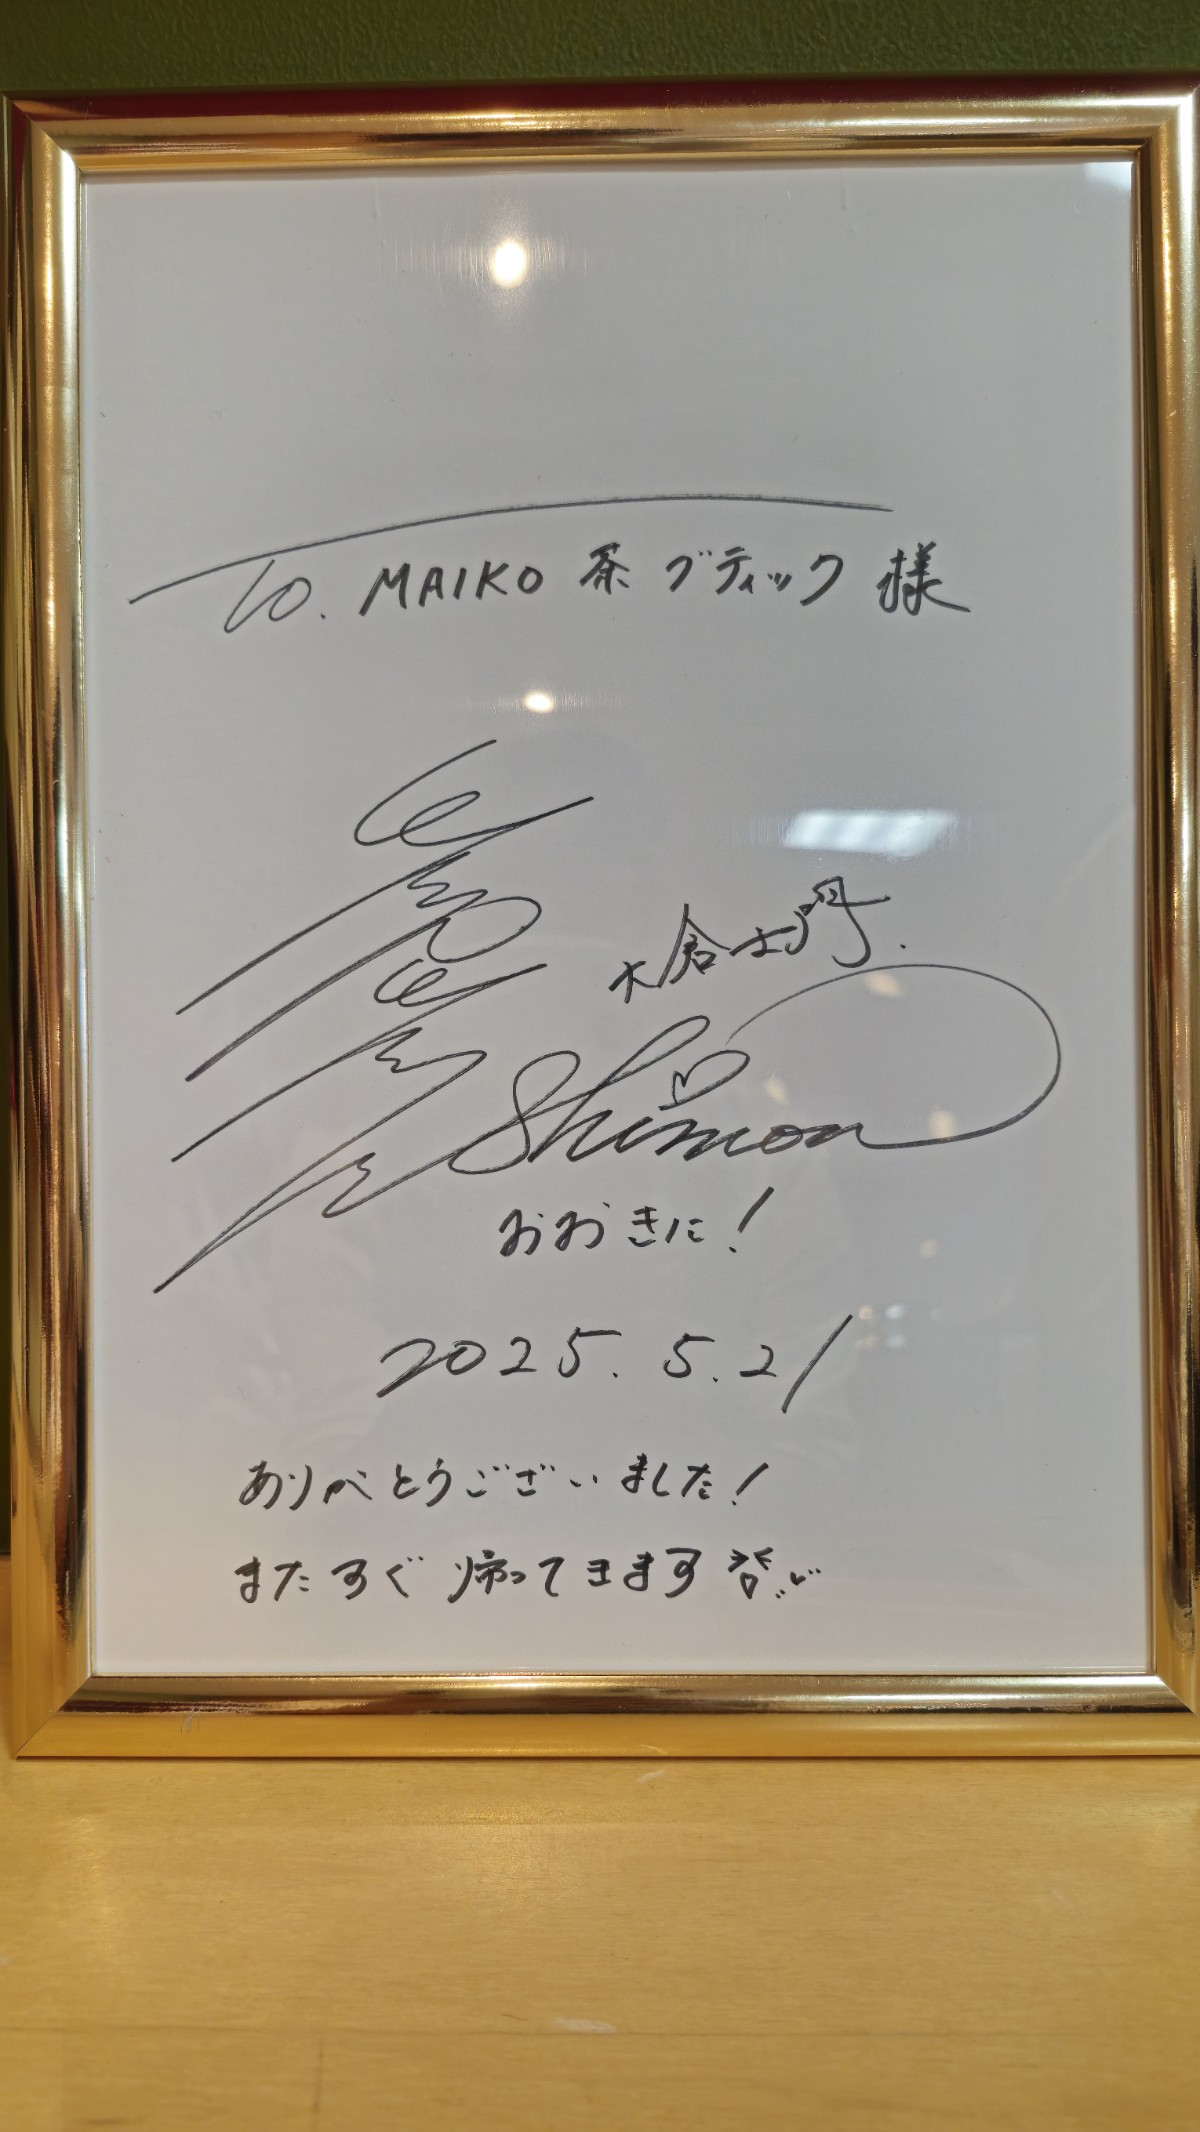 To. MAIKO 茶 ブティック 様
大倉士門.
Shimon
おおきに!
2025. 5. 21
ありがとうございました!
またすぐ帰ってきます